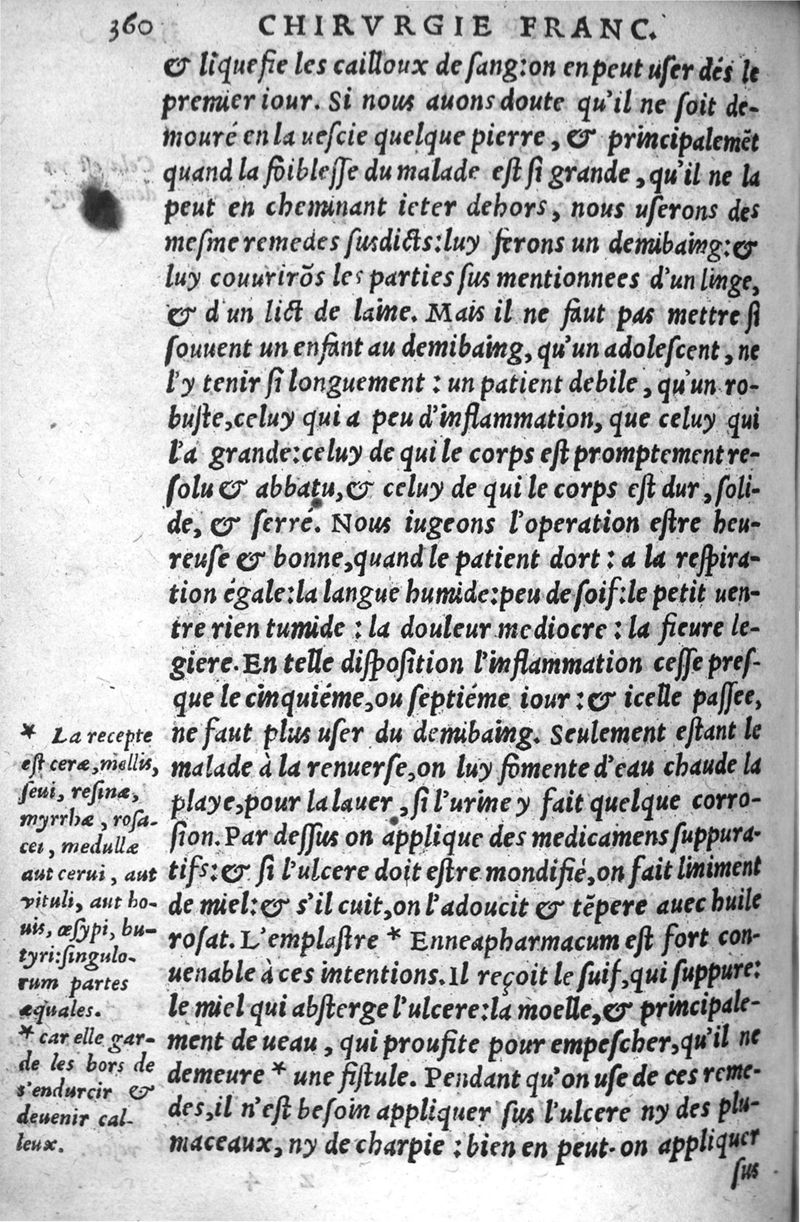 360 CHIRVRGIE FRANC.
& liquefie les cailloux de ſang:on en peut uſer dés le
premier iour. Si nous auons doute qu'il ne ſoit de-
mouré en la ueſcie quelque pierre, & principalemẽt
quand la foibleſſe du malade eſt ſi grande, qu'il ne la
peut en cheminant ieter dehors, nous uſerons des
meſme remedes ſusdicts:luy ferons un demibaing:&
luy couurirõs les parties ſus mentionnees d'un linge,
& d'un lict de laine. Mais il ne faut pas mettre ſi
ſouuent un enfant au demibaing, qu'un adoleſcent, ne
l'y tenir ſi longuement : un patient debile, qu'un ro-
buſte,celuy qui a peu d'inflammation, que celuy qui
l'a grande:celuy de qui le corps eſt promptement re-
ſolu & abbatu,& celuy de qui le corps eſt dur, ſoli-
de, & ſerré. Nous iugeons l'operation eſtre heu-
reuſe & bonne,quand le patient dort : a la reſpira-
tion égale:la langue humide:peu de ſoif:le petit uen-
tre rien tumide : la douleur mediocre : la fieure le-
giere. En telle diſpoſition l'inflammation ceſſe preſ-
que le cinquiéme,ou ſeptiéme iour : & icelle paſſee,
ne faut plus uſer du demibaing. Seulement eſtant le
malade à la renuerſe,on luy fomente d'eau chaude la
playe,pour la lauer, ſi l'urine y fait quelque corro-
ſion. Par deſſus on applique des medicamens ſuppura-
tifs:& ſi l'ulcere doit eſtre mondifié,on fait liniment
de miel:& s'il cuit,on l'adoucit & tẽpere auec huile
roſat. L'emplaſtre * Enneapharmacum eſt fort con-
uenable à ces intentions. Il reçoit le ſuif,qui ſuppure:
le miel qui abſterge l'ulcere:la moelle,& principale-
ment de ueau, qui proufite pour empeſcher,qu'il ne
demeure * une fiſtule. Pendant qu'on uſe de ces reme-
des,il n'eſt beſoin appliquer ſus l'ulcere ny des plu-
maceaux, ny de charpie : bien en peut-on appliquer
ſus
* La recepte
eſt ceræ,mellis,
ſeui, reſinæ,
myrrhæ, roſa-
cei, medullæ
aut cerui, aut
vituli, aut bo-
uis, œſypi, bu-
tyri:ſingulo-
rum partes
æquales.
* car elle gar-
de les bors de
s'endurcir &
deuenir cal-
leux.